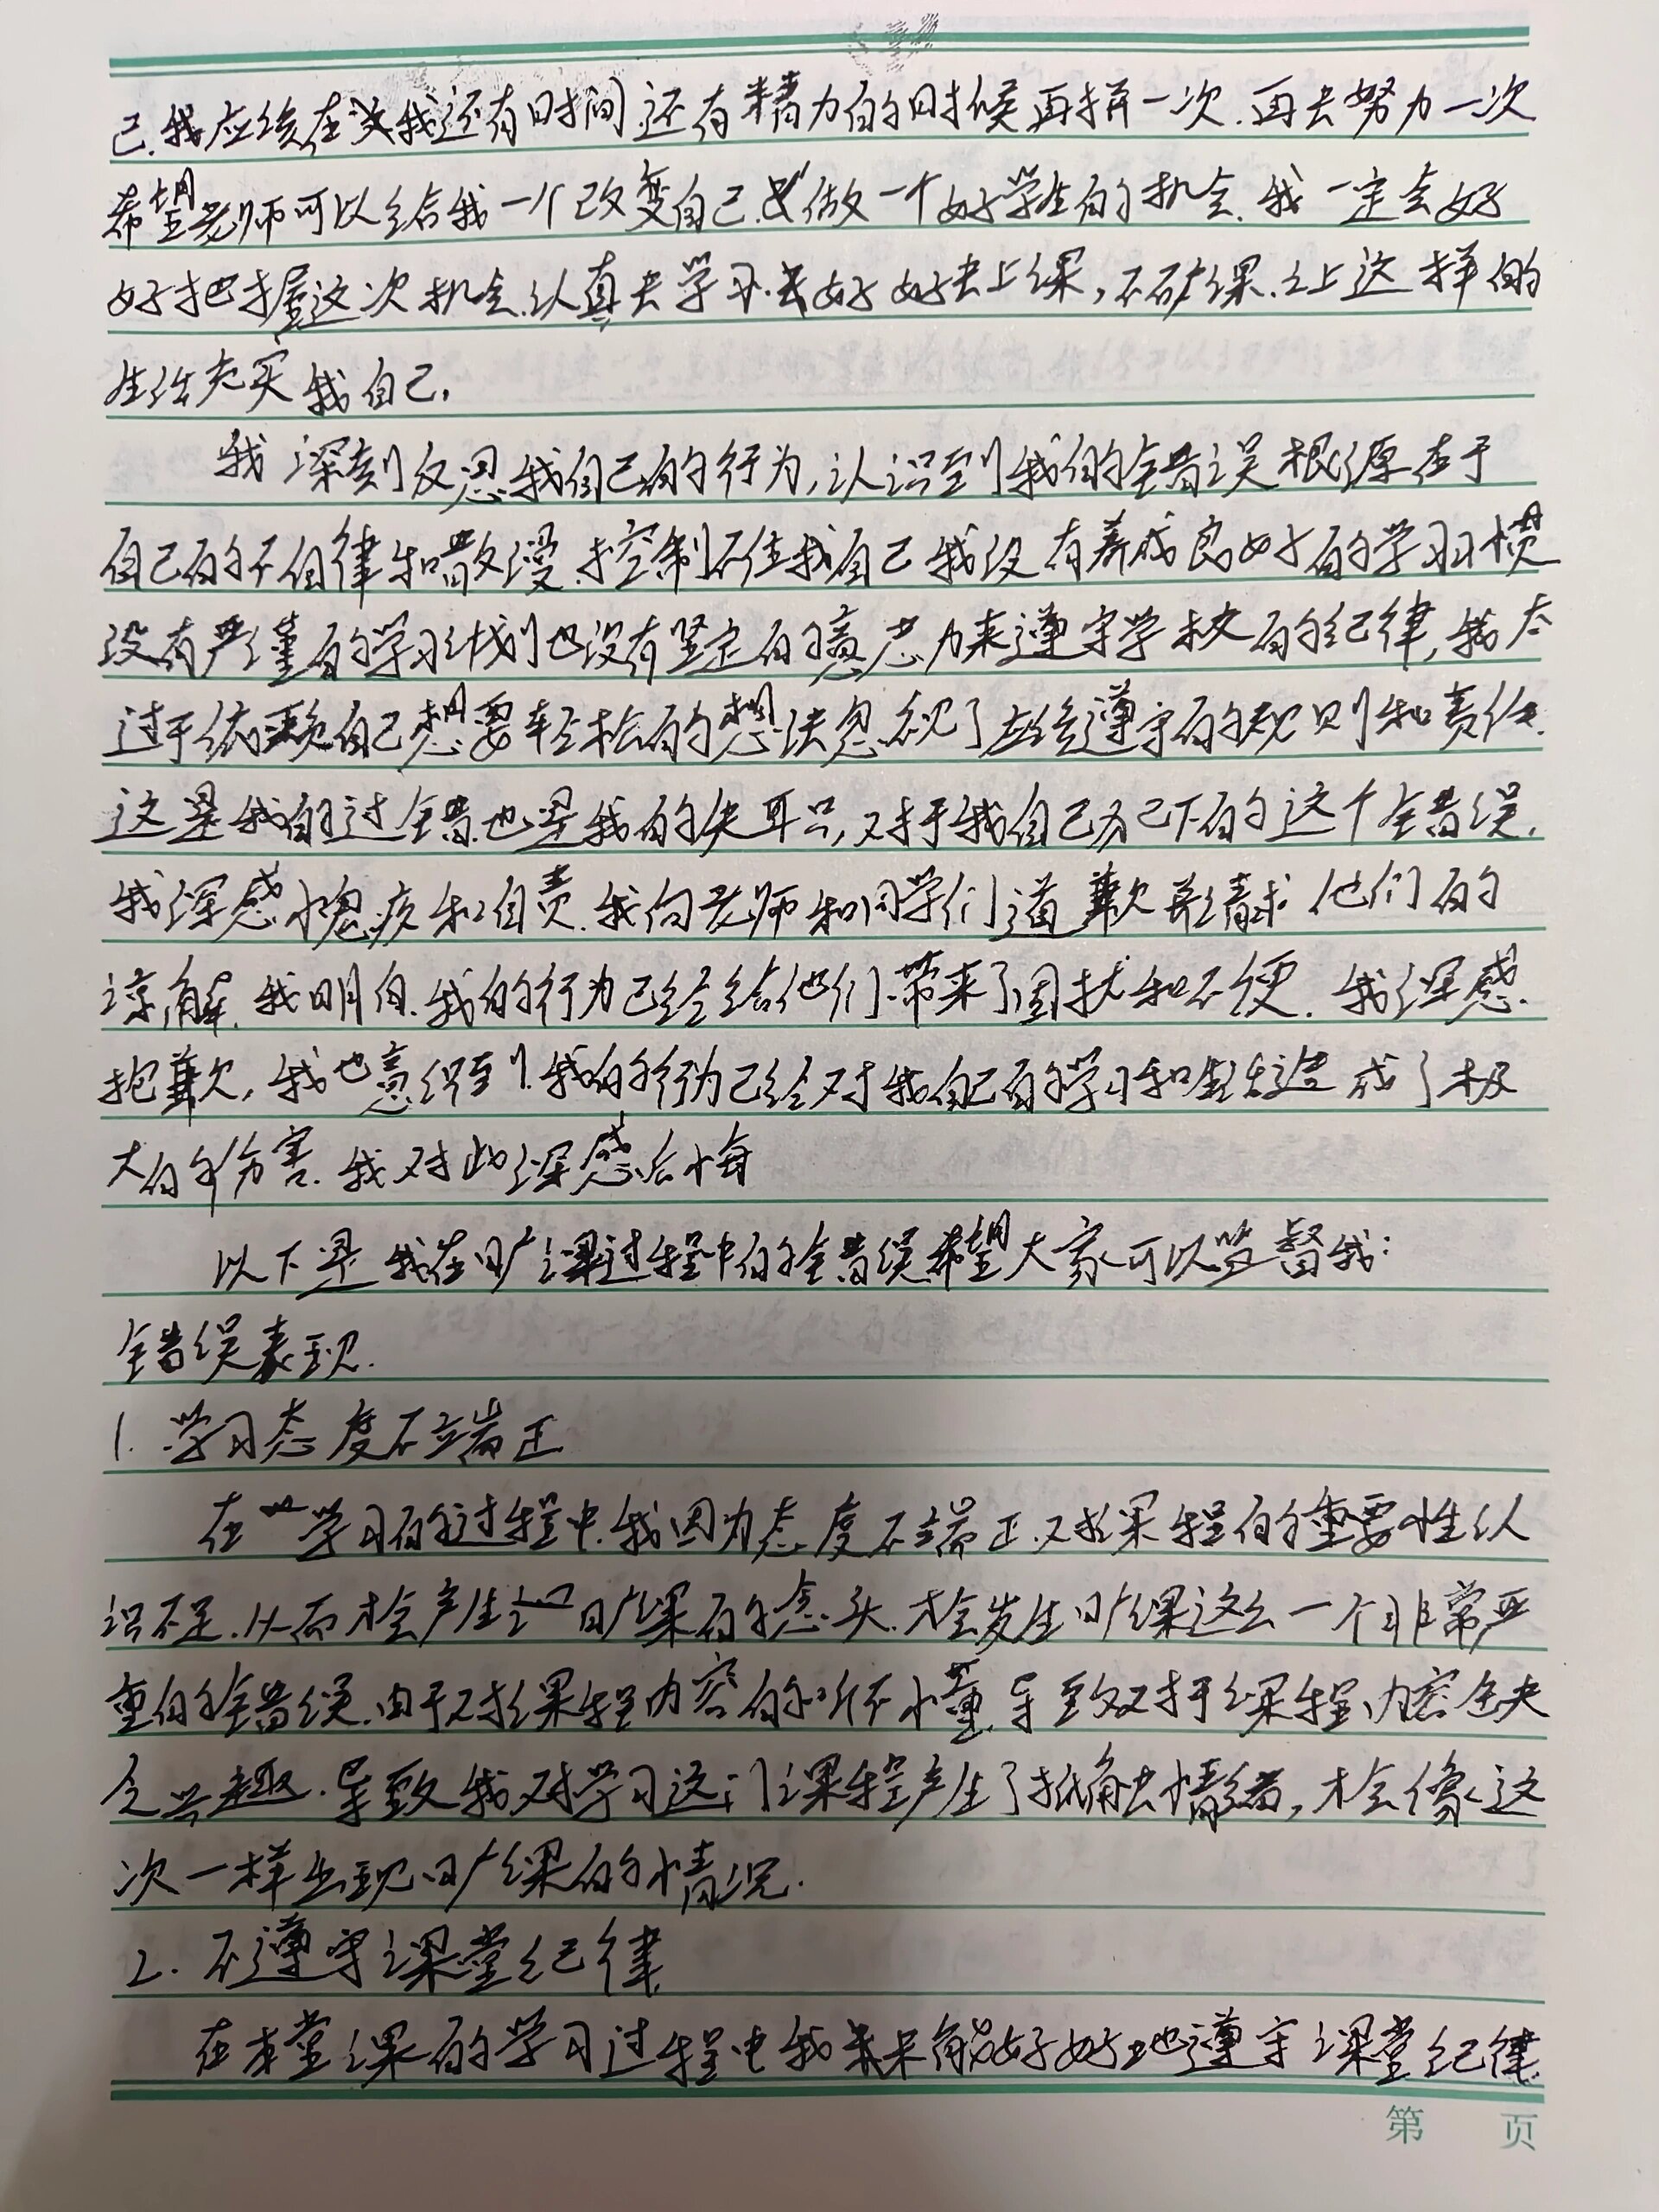 己.我应该在我还有时间.还有精力的时候再拼一次.再去努力一次
希望老师可以给我一个改变自己.做一个好学生的机会.我一定会好
好把握这次机会.认真去学习.去好好去上课,不旷课.让上这样的
生活充实我自己.
我深刻反思我自己的行为,认识到我的错误根源在于
自己的不自律和散漫.控制不住我自己.我没有养成良好的学习习惯
没有严谨的学习计划也没有坚定的意志力来遵守学校的纪律,我太
过于依赖自己想要轻松的想法忽视了应该遵守的规则和责任.
这是我的过错.也是我的失职,对于我自己犯下的这个错误.
我深感愧疚和自责.我向老师和同学们道歉并请求他们的
谅解.我明白.我的行为已经给他们带来了困扰和不便.我深感
抱歉,我也意识到.我的行为已经对我自己的学习和生活造成了极
大的伤害.我对此深感后悔
以下是我在旷课过程中的错误希望大家可以监督我:
错误表现.
1.学习态度不端正
在学习的过程中.我因为态度不端正.对课程的重要性认
识不足.从而才会产生旷课的念头.才会发生旷课这么一个非常严
重的错误.由于对课程内容的听不懂.导致对于课程内容缺
乏兴趣.导致我对学习这门课程产生了抵触情绪,才会像这
次一样出现旷课的情况.
2.不遵守课堂纪律
在本堂课的学习过程中我未能好好地遵守课堂纪律.
第 页